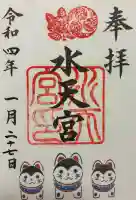 奉拝
水天宮
令和四年
一月二十七日